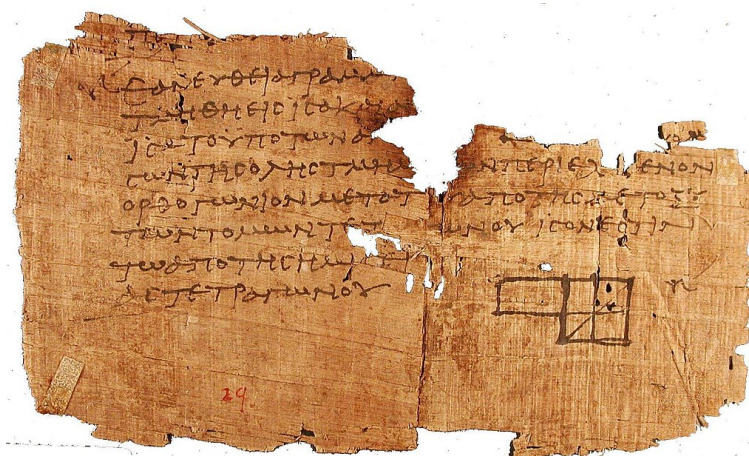 ΕΑΝ ΕΥΘΕΙΑ ΓΡΑΜΜ
ΤΜΗΘΗ ΕΙϹ ΙϹΑ ΚΑΙ Α
ΙϹΑ ΤΟ ΥΠΟ ΤΩΝ Α
ϹΩΝ ΤΗϹ ΟΛΗϹ ΤΜΗΜ ΩΝ ΠΕΡΙΕΧ ΕΝΟΝ
ΟΡΘΟΓΩΝΙΟΝ ΜΕΤΑ ΤΟΥ ΑΠΟ ΤΗϹ ΜΕΤΟΞΥ
ΤΩΝ ΤΟΜΩΝ ΤΕΤ ΩΝΟΥ ΙϹΟΝ ΕϹΤΙΝ
ΤΩ ΑΠΟ ΤΗϹ ΗΜΙϹΕΙ
ΑϹ ΤΕΤΡΑΓΩΝΟΥ
29